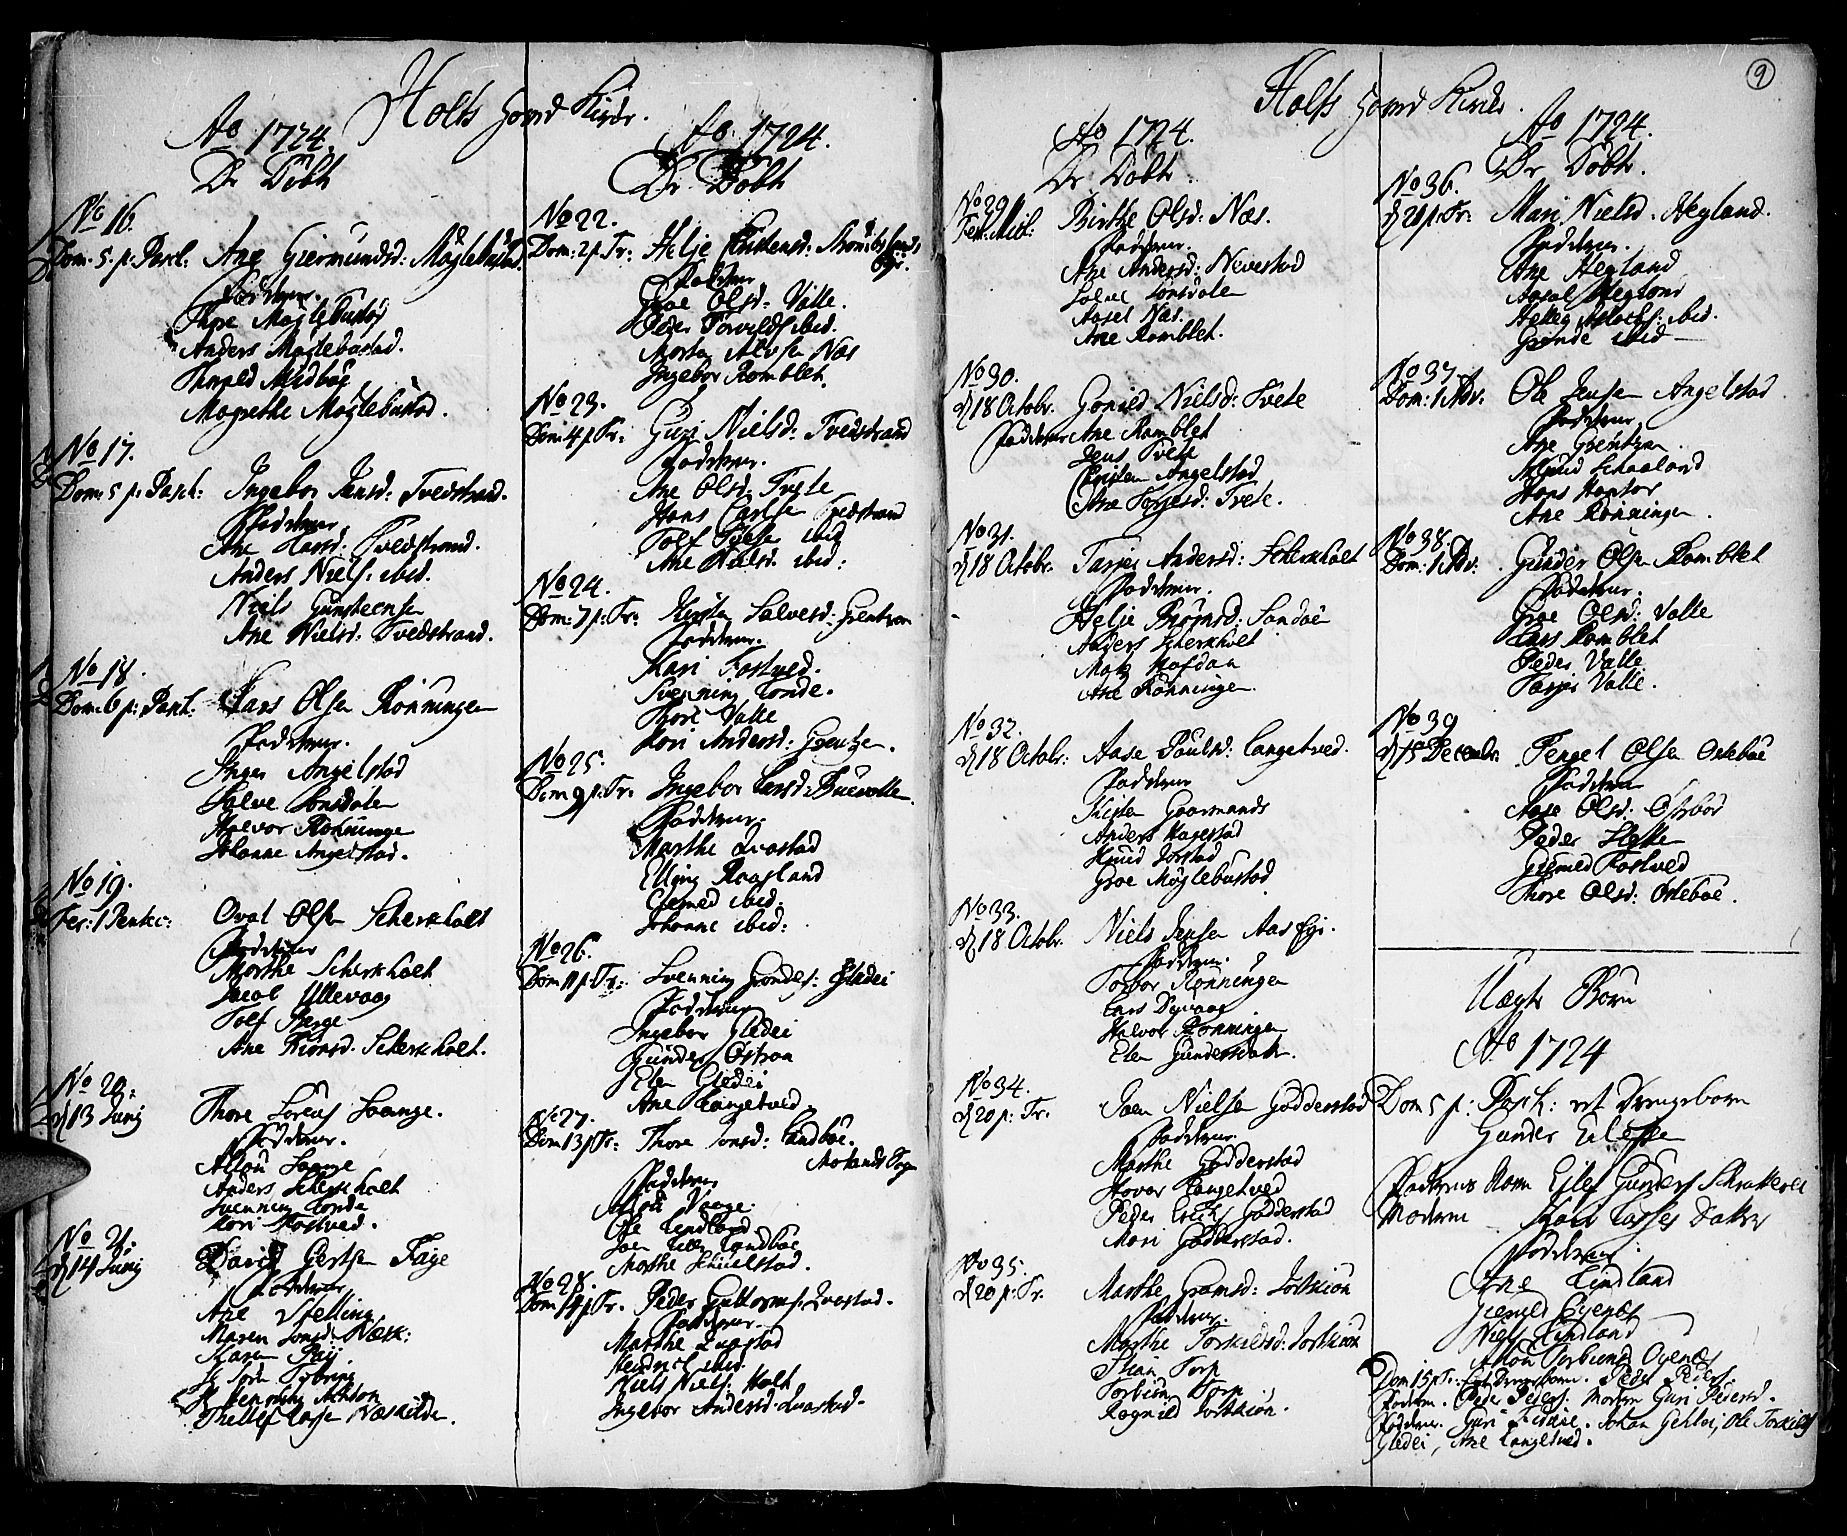 Holts Hoved Kirke.
Ao 1724.
De Döbte
No 16.
Dom. 5 p: Pasch: Ane Giermundsd: Möglebustad.
Fadderne.
Thore Möglebustad
Anders Möglebustad.
Harald Midböe
Magrethe Möglebustad.
No 17.
Dom: 5 p: Pasch: Ingebor Jensd: Tvedstrand.
Fadderne
Ane Hansd: Tvedstrand.
Anders Niels: ibid.
Niels Gunstensen
Ane Nielsd: Tvedstrand.
No 18.
Dom: 6 p: Pasch: Lars Olsen Rönningen
Fadderne.
Inger Angelstad
Salve Lonsdalen
Halvor Rönninge
Johanne Angelstad.
No 19.
Fer: 1 Pentec: Oval Olsen Scherkholt
Fadderne
Marthe Scherkholt
Jacob Ullevaag
Tolf Berge
Ane Biönsd. Scherkholt.
No 20:
d 13 Junij Thore Lorens Laange.
Fadderne.
Alfou Laange
Anders Scherkholt
Svenning Londe
Kari Fostved.
No 21.
d 14 Junij David Gertsen Faye
Fadderne
Ane Spelling
Maren Jonsd: Næsk:
Karen Paij
Jörn Tybring
Henning Ashton
Thellef Larsen Næskilde.
Ao 1724.
De Döbte
No 22.
Dom: 2 p. Tr: Helje Christensd:
Fadderne
Groe Olsd: Valle.
Peder Torvilds ibid.
Morten Alvsen Næs
Ingebor Ramblet.
No 23.
Dom: 4 p. Tr: Guri Nielsd: Tvedstrand
Fadderne.
Ane Olsd. Tvete
Hans Carlsen Tvedstrand
Tolf Olsen ibid
Ane Nielsd. ibid:
No 24.
Dom: 7 p: Tr: Kirsten Salvesd: Grentzen
Fadderne.
Kari Fostved.
Svenning Londe.
Thore Valle
Kari Andersd: Grentzen.
No 25.
Dom 9 p: Tr: Ingebor Larsd:
Fadderne.
Marthe Qvastad
Elling Raagland
Giermed ibid:
Johanne ibid:
No 26.
Dom 11 p: Tr: Svenning Grondes: Gledei
Fadderne
Ingebor Gledei
Gunder Östraa
Elen Gledei
Ane Langetved
No 27.
Dom 13 p Tr: Thore Jonsd: Landböe.
Aaslands Sogn
Fadderne
Alfou Vaage
Ole Lindland
Joen Landböe
Marthe Schuelstad.
No 28.
Dom: 14 p Tr. Peder Guttorms: Qvastad.
Fadderne.
Marthe Qvastad
Hendrich ibid
Niels Niels: Holt
Ingebor Andersd. Qvastad.
Holts Hoved Kirke.
9
Ao 1724.
De Döbte.
No 29
Fest: Mich: Birthe Olsd: Næs.
Fadderne.
Ane Andersd: Nevestad
Salve Lonsdale
Aasel Næs.
Ane Ramblet.
No 30.
d 18 Octobr. Gonild Nielsd: Tvete
Fadderne Ane Ramblet
Jens Tvete
Christen Angelstad
Ane Torjesd: Tvete.
No 31.
d 18 Octobr. Tarjer Andersd: Scherkholt
Fadderne.
Helje Biörnsd: Sandöe
Anders Scherkholt
Matz Hofdan
Ane Rönningen.
No 32.
d 18 Octobr: Aase Poulsd: Langetved.
Fadderne
Kirsten Goormands
Anders Hagestad
Knud Jorstad
Groe Möglebustad
No 33.
d 18 Octobr. Niels Jensen Aas
Fadderne.
Torbor Rönningen
Lars Dyvaag
Halvor Rönningen
Elen Gundersdatter.
No 34.
d 20 p: Tr. Joen Nielsen Godderstad
Fadderne.
Marthe Godderstad
Hovor Langetved
Peder Erichs Godderstad
Mari Godderstad.
No 35.
d 20 p: Tr. Marthe Gromsd: Jortkiön
Fadderne.
Marthe Torkildsd: Jortkiön
Stian Torp
Torbiön Torp
Ragnild Jortkiön.
Ao 1724.
De Döbte.
No 36.
d 21 p: Tr: Mari Nielsd. Hegland.
Fadderne.
Ane Hegland
Aasel Hegland
Hellej Aslachs: ibid.
Gronde ibid
No 37.
Dom: 1 Adv: Ole Jensen Angelstad.
Fadderne
Ane Grentzen.
Knud Schaaland
Hans Hantor
Ane Rönningen.
No 38.
Dom: 1 Adv: Gunder Olsen Ramblet
Fadderne.
Groe Olsd: Valle
Lars Ramblet
Peder Valle
Tarjer Valle.
No 39
d 15 Decembr. Tengel Olsen Östeböe
Fadderne
Aase Olsd. Östeböe
Peder Slette
Giermed Fostved
Thore Olsd: Östeböe.
Uægte Börn
Ao 1724
Dom 5 p: Pasch: et Drengebarn
Gunder Eilefsen
Faderens Navn Eilef Gunders Skratterei
Moderen Larses Datter
Fadderne
Ane Lindland
Gierulf Eyenes
Niels Lindland
Alfou Torbiönsd Oyenes
Dom 15 p Tr: Drengebarn. Peder Peders.
Faderen. Peder Peders: Moderen Guri Pedersd.
Fadderne. Guri. Johan Gehlei, Ole Torkilds
Gledei, Ane Langetved.